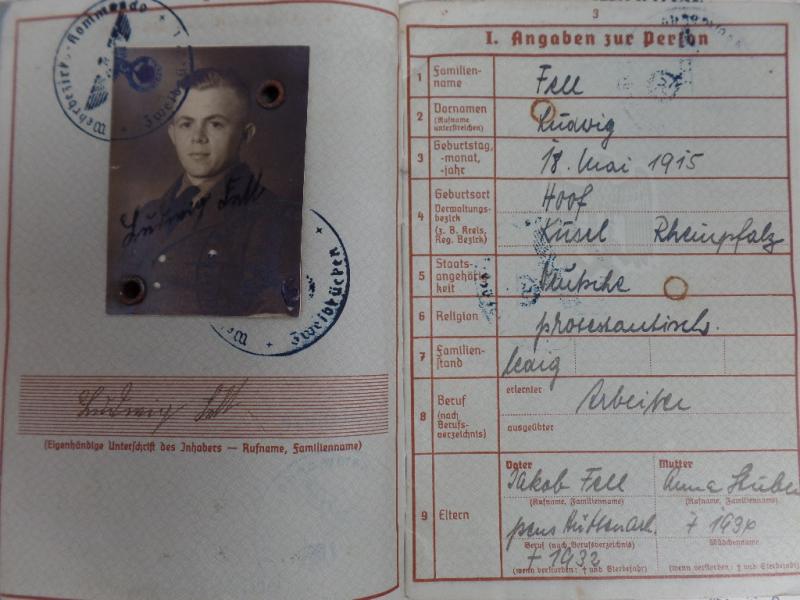 Wehrbezirks-Kommando
Zweibrücken
Ludwig Fell
Zweibrücken
Ludwig Fell
(Eigenhändige Unterschrift des Inhabers — Rufname, Familienname)
3
I. Angaben zur Person
1 Familien-
name
Fell
2 Vornamen
(Rufname
unterstreichen)
Ludwig
3 Geburtstag,
-monat,
-jahr
18. Mai 1915
4 Geburtsort
Verwaltungs-
bezirk
(z. B. Kreis,
Reg. Bezirk)
Hoof
Kusel Rheinpfalz
5 Staats-
angehörig-
keit
Deutsche
6 Religion
protestantisch.
7 Familien-
stand
ledig
8 Beruf
(nach
Berufs-
verzeichnis)
erlernter
Arbeiter
ausgeübter
9 Eltern
Vater Mutter
Jakob Fell Anna
(Rufname, Familienname) (Rufname, Familienname)
pens. Hüttenarb. † 193
Beruf (nach Berufsverzeichnis) Mädchenname
† 1932
(wenn verstorben: † und Sterbejahr) (wenn verstorben: † und Sterbejahr)